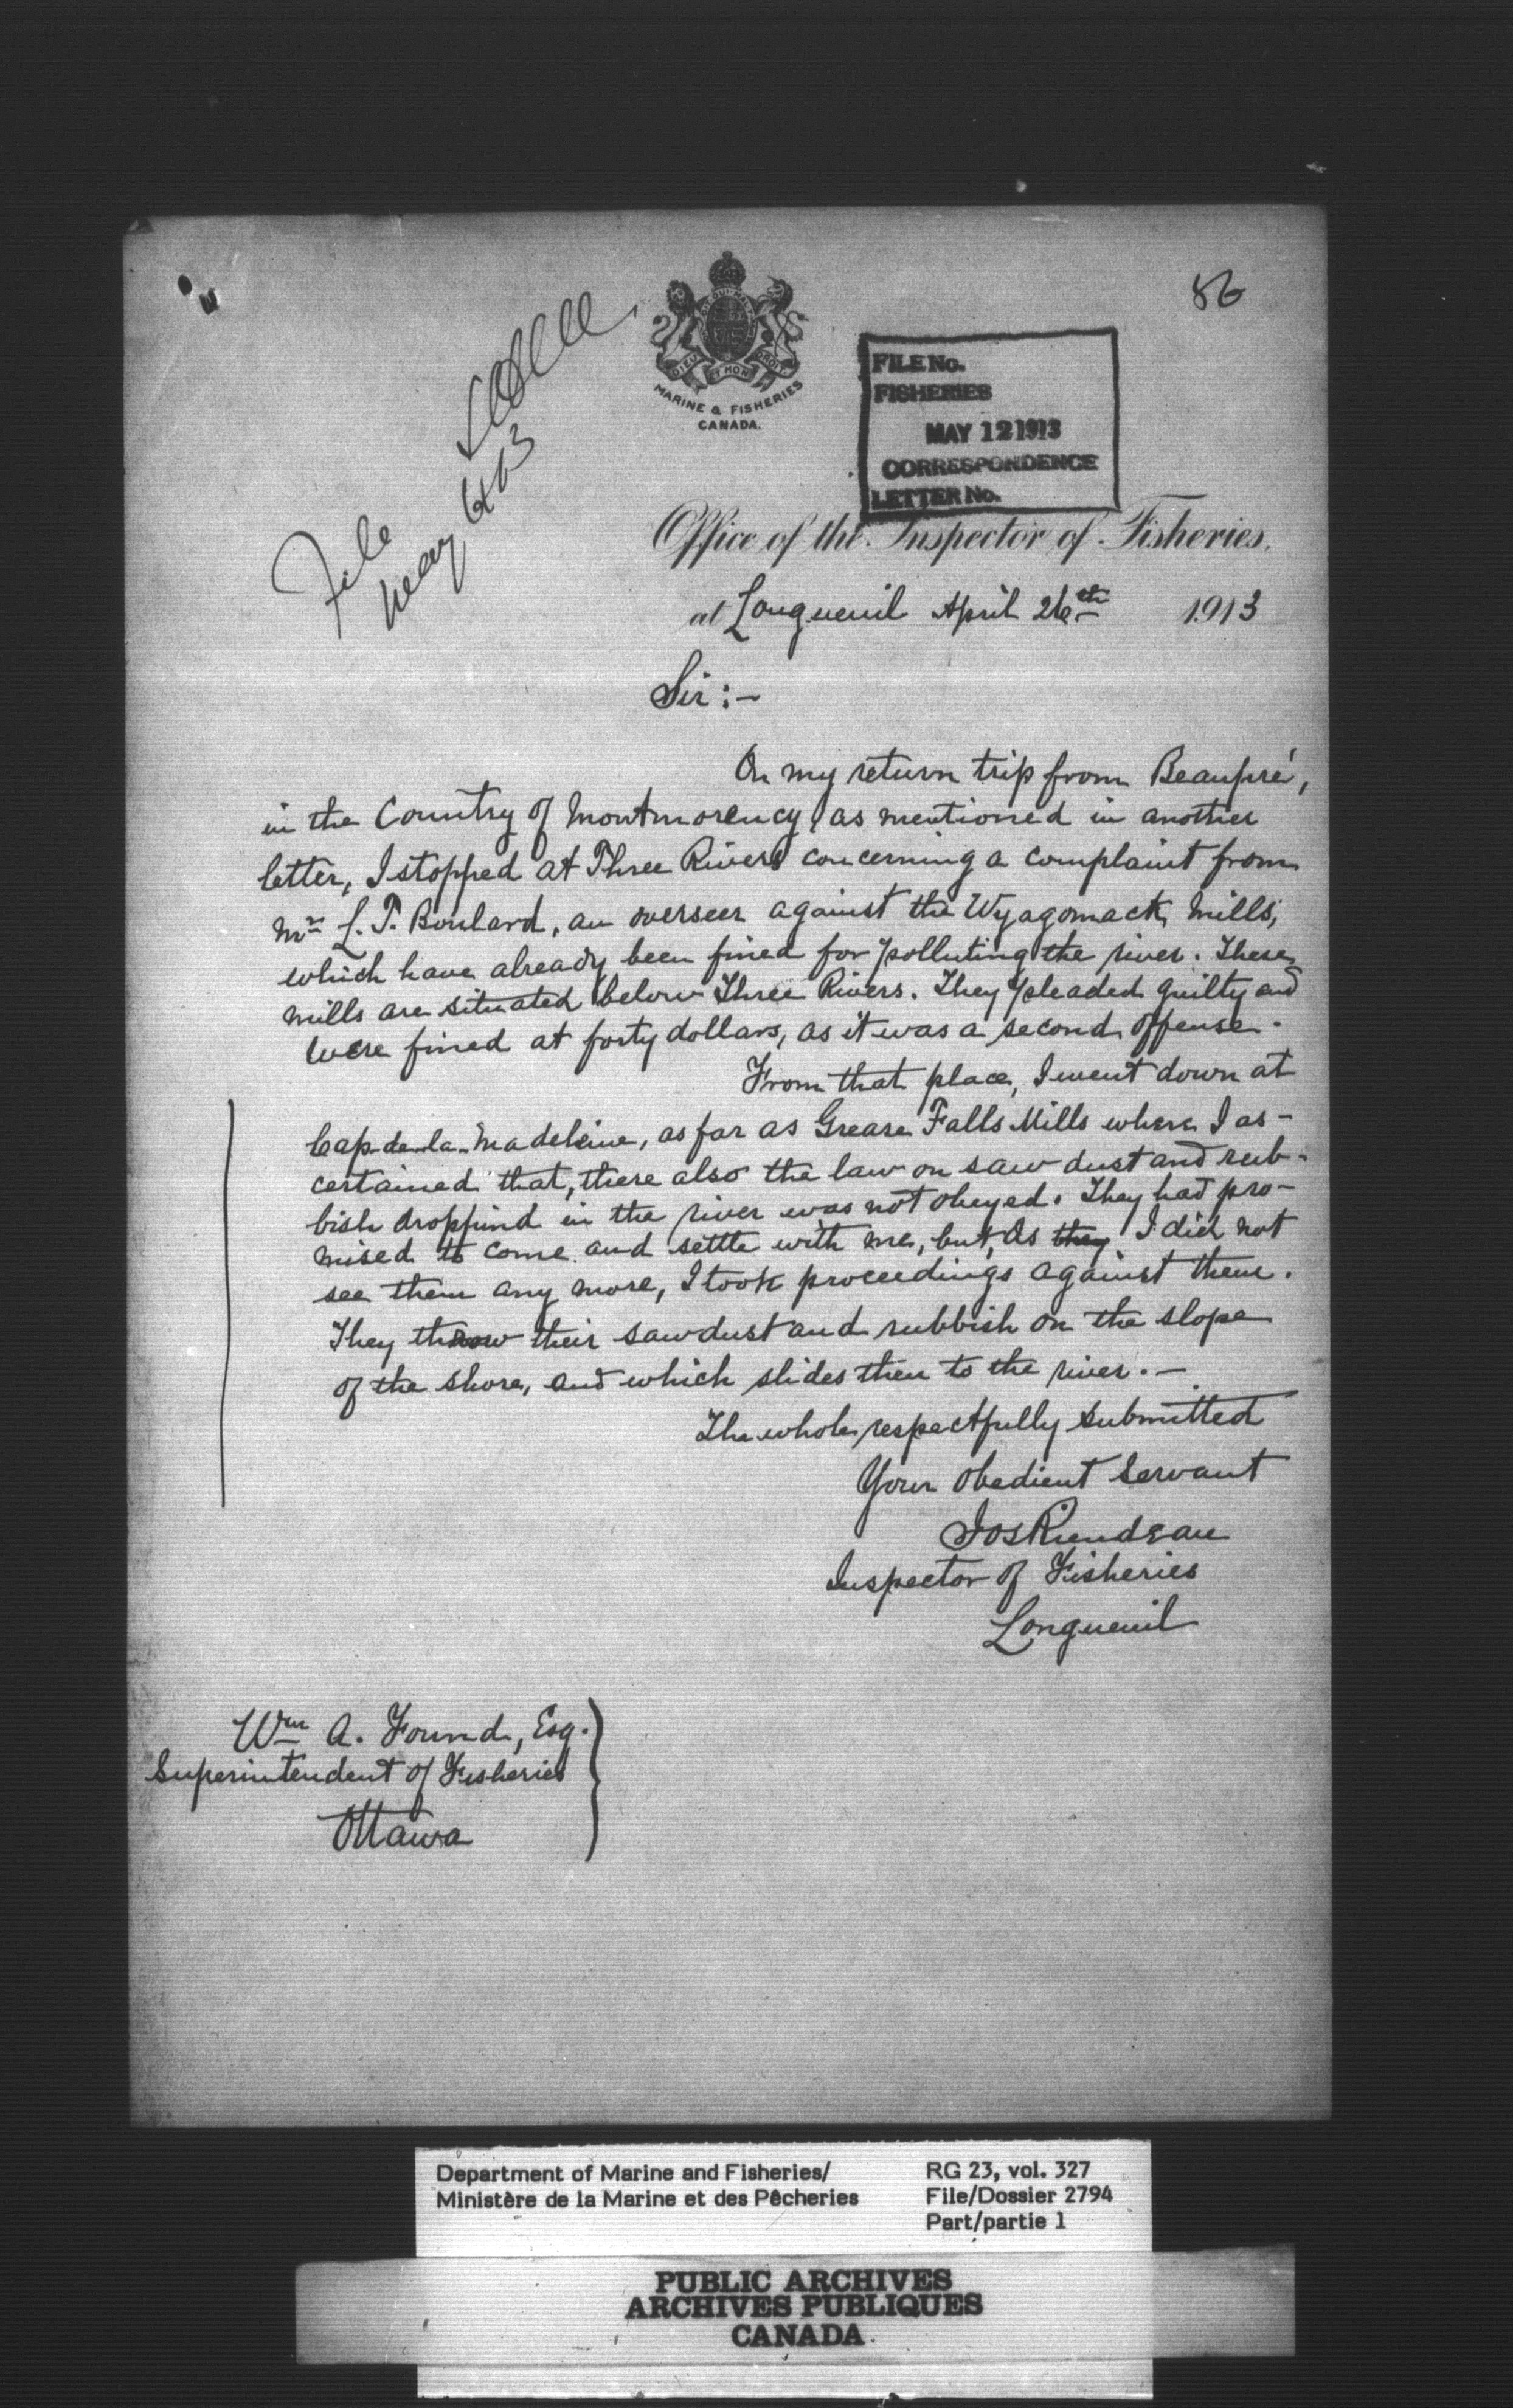 86
DIEU ET MON DROIT
MARINE & FISHERIES
CANADA.
FILE No.
FISHERIES
MAY 12 1913
CORRESPONDENCE
LETTER No.
File
May 6/13
Office of the Inspector of Fisheries,
at Longueuil April 26th 1913
Sir :-
On my return trip from Beaupré,
in the Country of Montmorency, as mentioned in another
letter, I stopped at Three Rivers concerning a complaint from
Mr L. T. Boulard, an overseer against the Wyagomack Mills,
which have already been fined for polluting the river. These
mills are situated below Three Rivers. They pleaded guilty and
were fined at forty dollars, as it was a second offense.
From that place, I went down at
Cap-de-la-Madeleine, as far as Greare Falls Mills where I as-
certained that, there also the law on saw dust and rub-
bish droppind in the river was not obeyed. They had pro-
mised to come and settle with me, but, as they I did not
see them any more, I took proceedings against them.
They throw their sawdust and rubbish on the slope
of the shore, and which slides then to the river. -
The whole respectfully submitted
Your obedient servant
Jos Riendeau
Inspector of Fisheries
Longueuil
Wm A. Found, Esq.
Superintendent of Fisheries
Ottawa
Department of Marine and Fisheries/
Ministère de la Marine et des Pêcheries
RG 23, vol. 327
File/Dossier 2794
Part/partie 1
PUBLIC ARCHIVES
ARCHIVES PUBLIQUES
CANADA